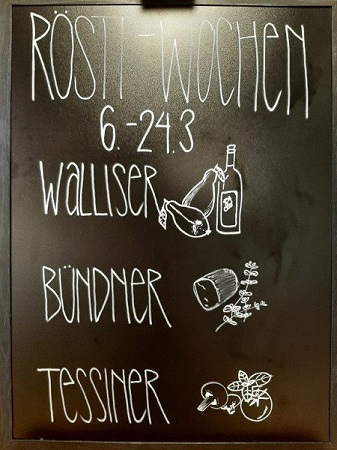 RÖSTI-WOCHEN
6.-24.3
WALLISER
BÜNDNER
TESSINER